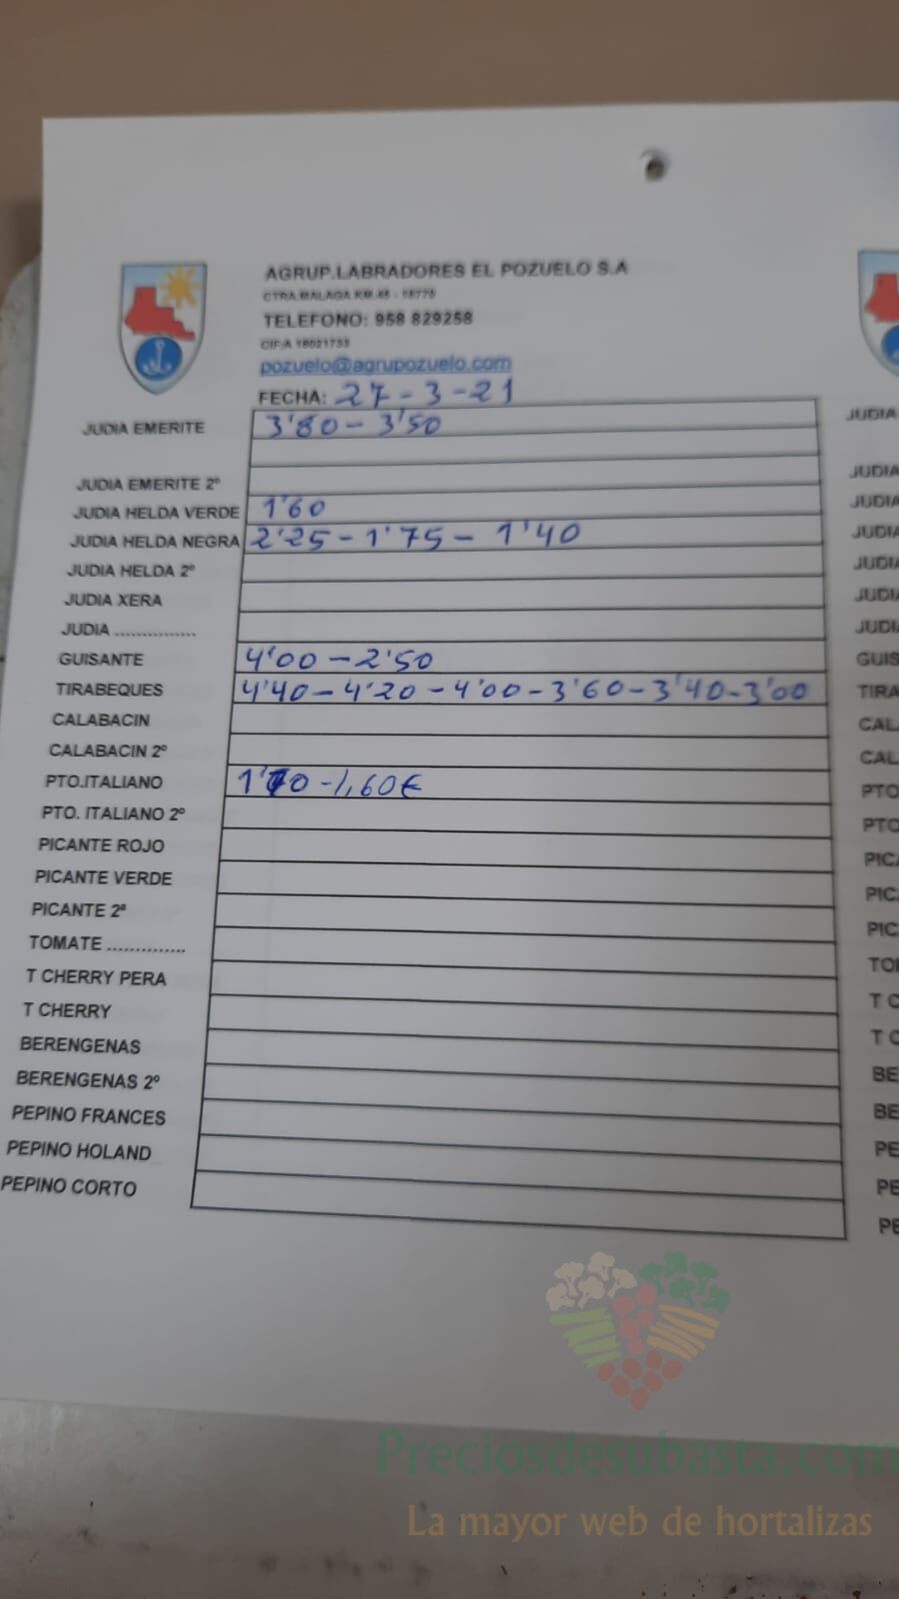 AGRUP.LABRADORES EL POZUELO S.A
CTRA.MALAGA KM.48 - 18770
TELEFONO: 958 829258
CIF:A 18021733
pozuelo@agrupozuelo.com
FECHA: 27-3-21
JUDIA EMERITE 3'80 - 3'50
JUDIA EMERITE 2º
JUDIA HELDA VERDE 1'60
JUDIA HELDA NEGRA 2'25 - 1'75 - 1'40
JUDIA HELDA 2º
JUDIA XERA
JUDIA ...............
GUISANTE 4'00 - 2'50
TIRABEQUES 4'40 - 4'20 - 4'00 - 3'60 - 3'40 - 3'00
CALABACIN
CALABACIN 2º
PTO.ITALIANO 1'70 - 1,60€
PTO. ITALIANO 2º
PICANTE ROJO
PICANTE VERDE
PICANTE 2ª
TOMATE ..............
T CHERRY PERA
T CHERRY
BERENGENAS
BERENGENAS 2º
PEPINO FRANCES
PEPINO HOLAND
PEPINO CORTO
JUDIA
JUDIA
JUDIA
JUDIA
JUDIA
JUDI
JUDI
GUIS
TIRA
CAL
CAL
PTO
PTO
PIC
PIC
PIC
TO
T C
T C
BE
BE
PE
PE
PE
Preciosdesubasta.com
La mayor web de hortalizas